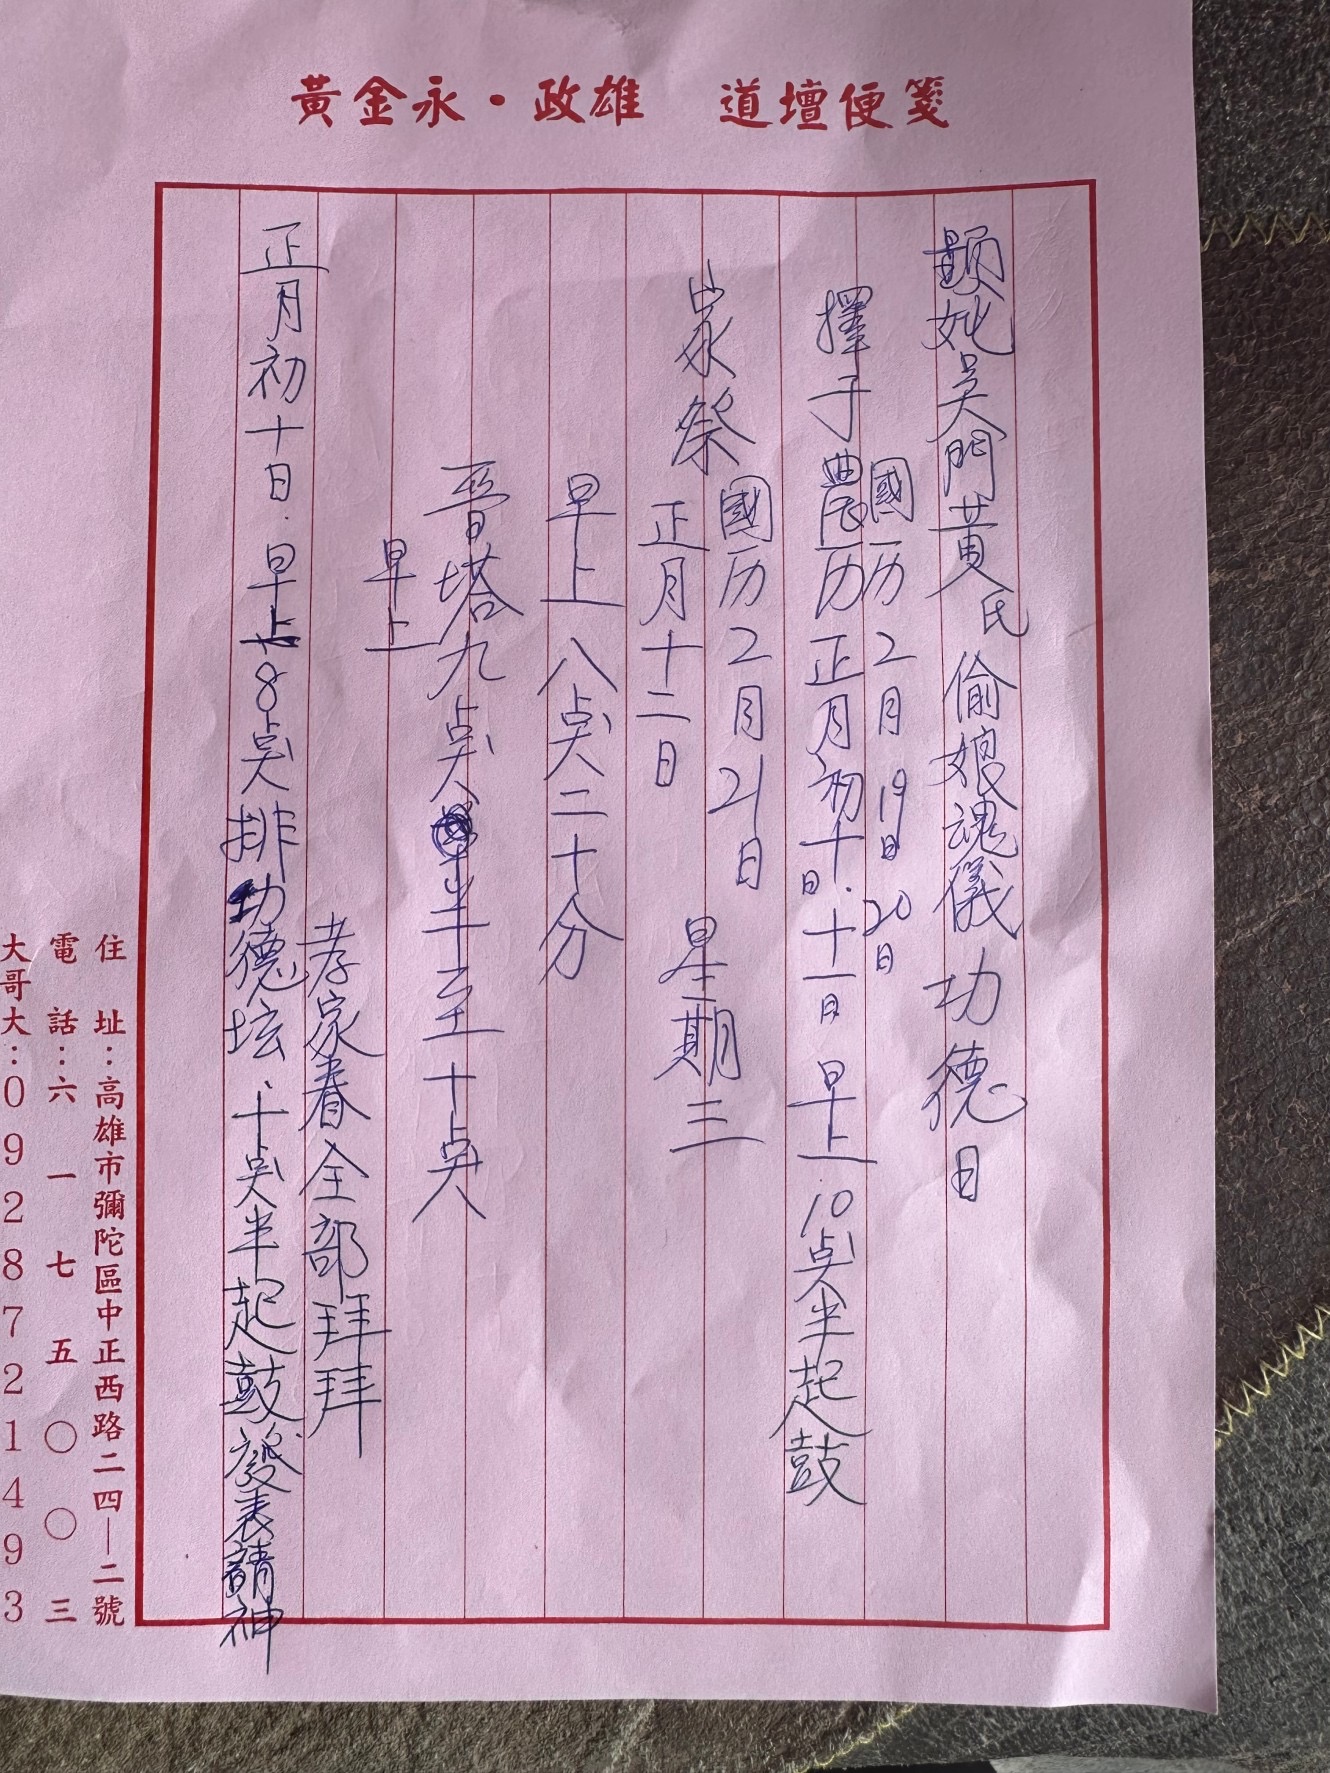 黃金永・政雄 道壇便箋
顯妣吳門黃氏偷娘魂儀功德日
擇于國历2月19日20日
農历正月初十日.十一日早上10点半起鼓
家祭國历2月21日星期三
正月十二日
早上八点二十分
晋塔九点半至十点
早上
孝家眷全部拜拜
正月初十日.早上8点排功德坛、十点半起鼓發表請神
住址：高雄市彌陀區中正西路二四—二號
電話：六一七五〇〇三
大哥大：0928721493